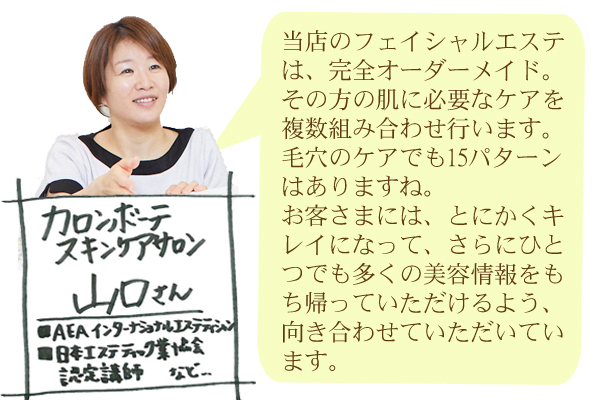 当店のフェイシャルエステ
は、完全オーダーメイド。
その方の肌に必要なケアを
複数組み合わせ行います。
毛穴のケアでも15パターン
はありますね。
お客さまには、とにかくキ
レイになって、さらにひと
つでも多くの美容情報をも
ち帰っていただけるよう、
向き合わせていただいてい
ます。
カロンボーテ
スキンケアサロン
山口さん
■AEAインターナショナルエステティシャン
■日本エステティック業協会
認定講師 など…